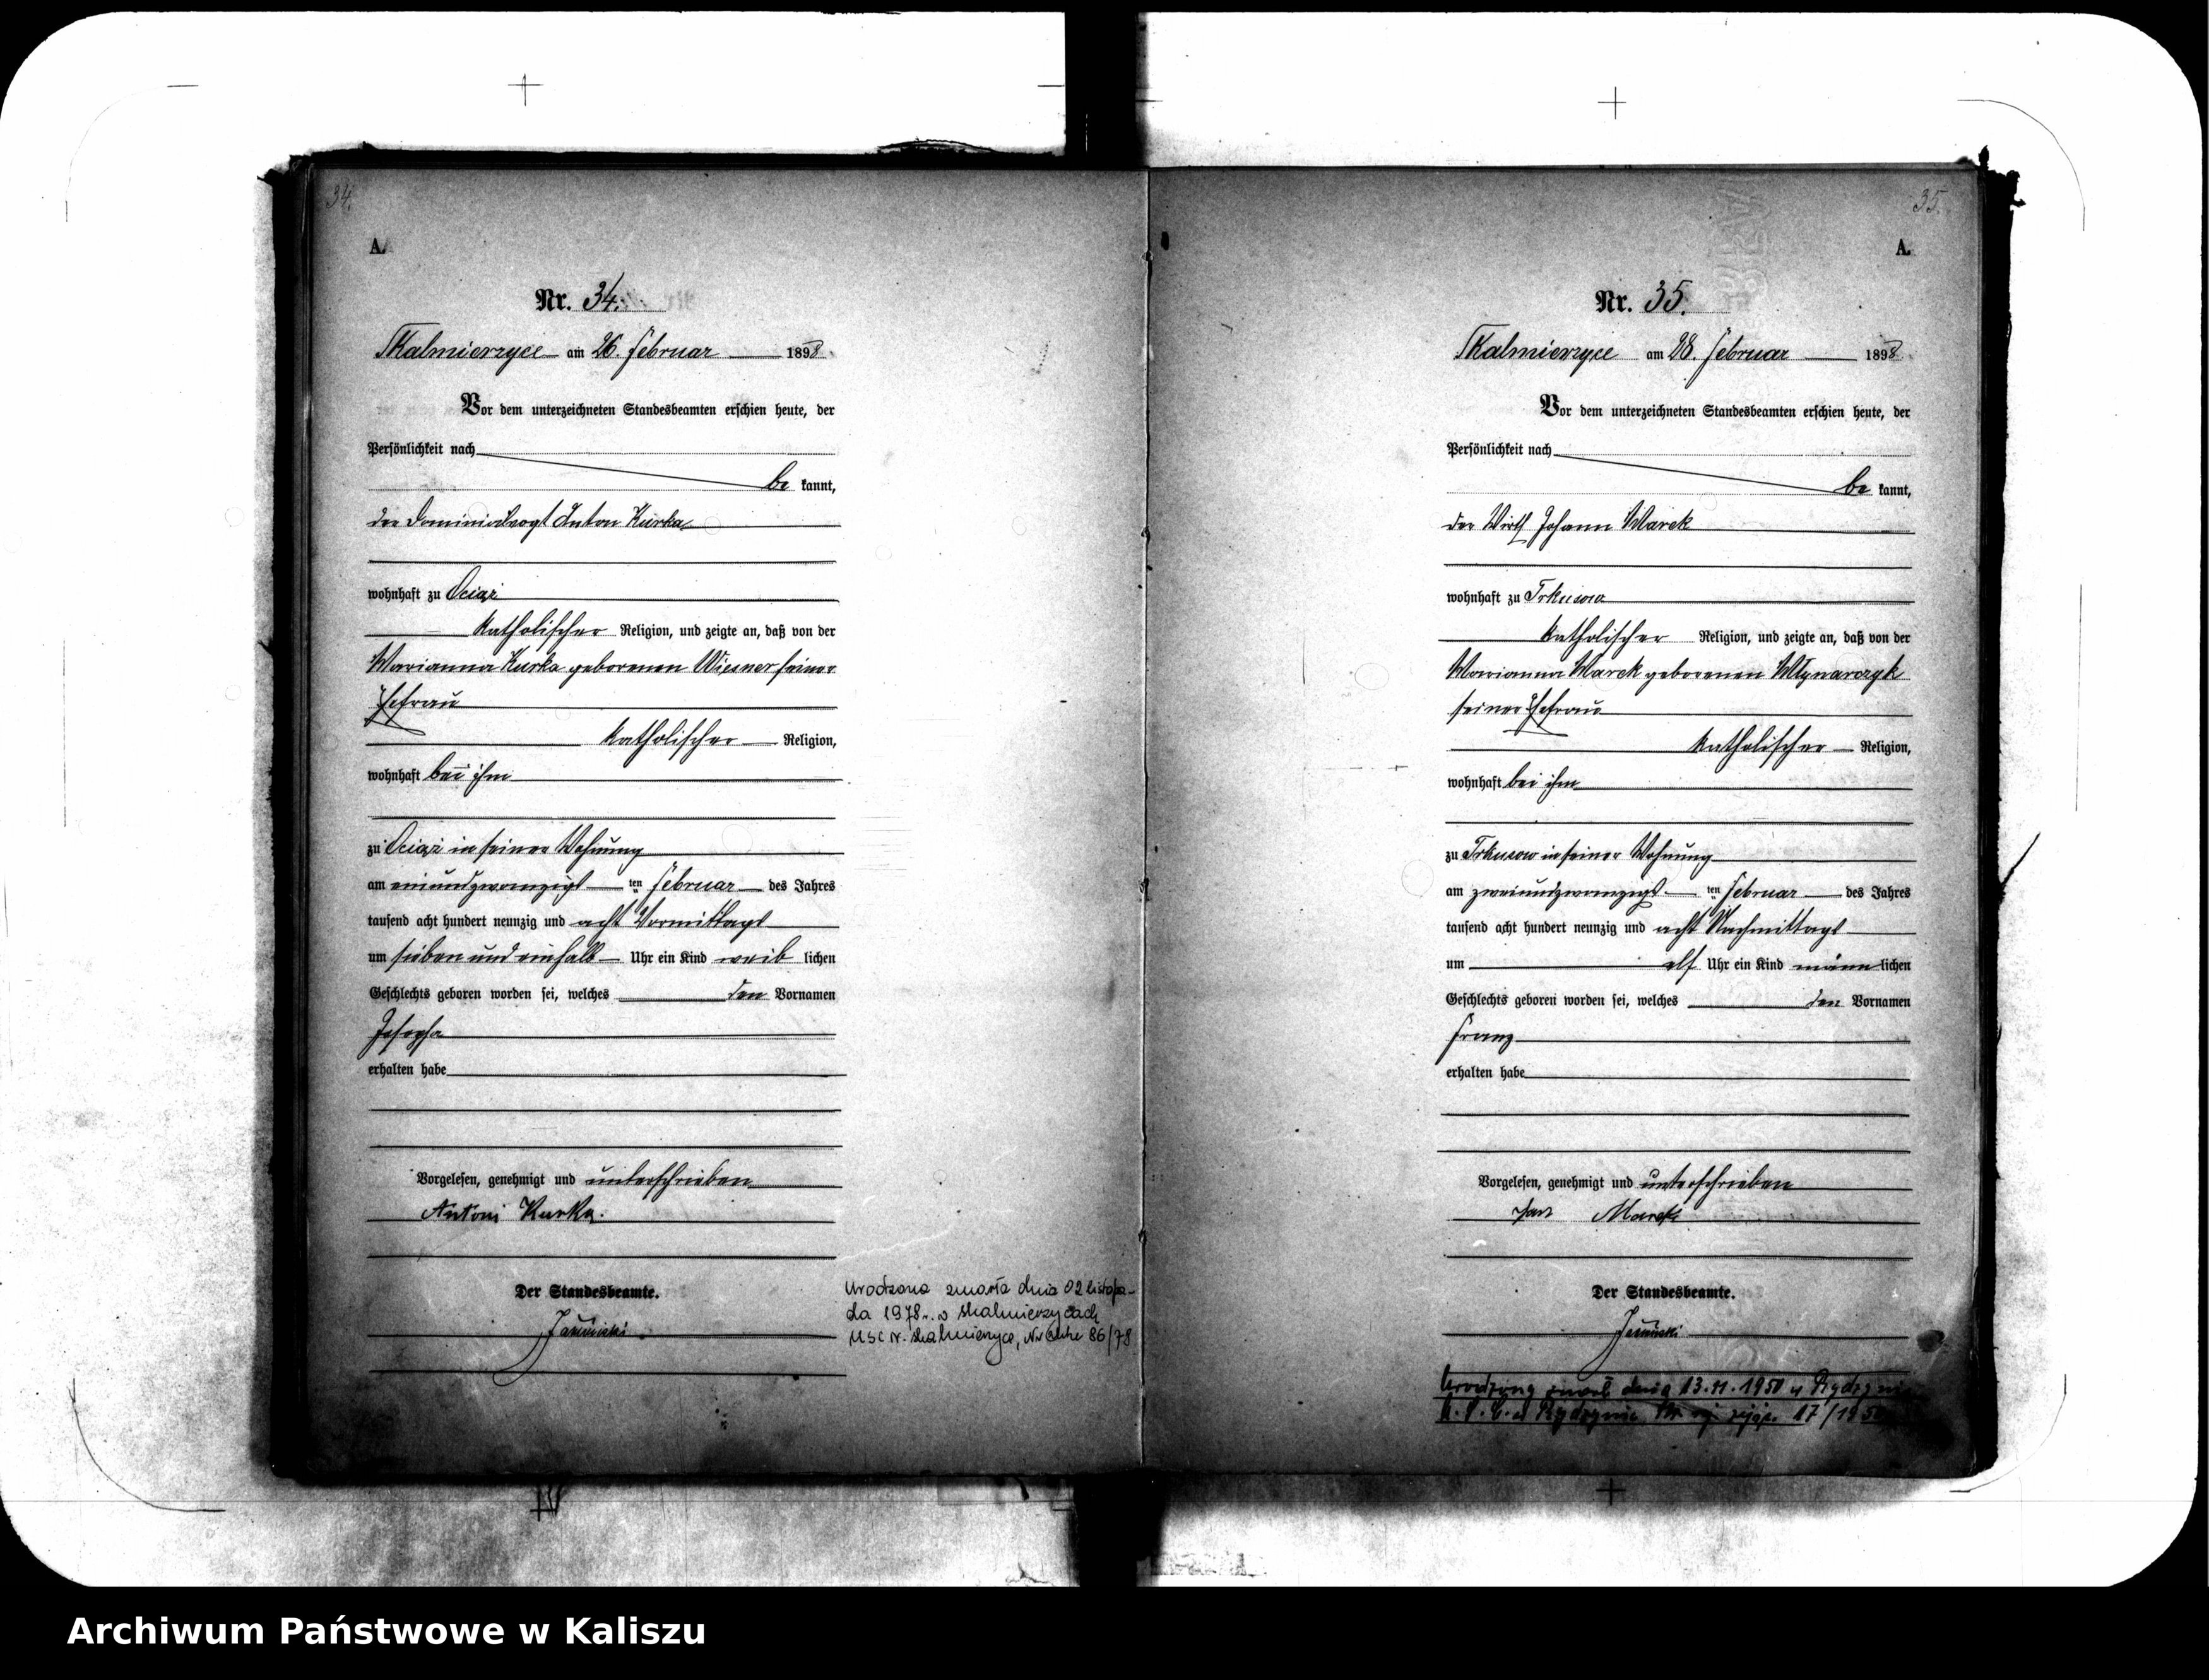 34.
A.
Nr. 34.
Skalmierzyce am 26. Februar 1898.
Vor dem unterzeichneten Standesbeamten erschien heute, der
Persönlichkeit nach
be kannt,
der Dominialvogt Anton Kurka
wohnhaft zu Ociąż
katholischer Religion, und zeigte an, daß von der
Marianna Kurka geborenen Wiesner seiner
Ehefrau
katholischer Religion,
wohnhaft bei ihm
zu Ociąż in seiner Wohnung
am einundzwanzigsten Februar des Jahres
tausend acht hundert neunzig und acht Vormittags
um sieben und einhalb Uhr ein Kind weib lichen
Geschlechts geboren worden sei, welches den Vornamen
Josepha
erhalten habe
Vorgelesen, genehmigt und unterschrieben
Antoni Kurka.
Der Standesbeamte.
Urodzona zmarła dnia 02 listopa-
da 1978 r. w Skalmierzycach
USC N. Skalmierzyce, Nr aktu 86/78
35.
A.
Nr. 35.
Skalmierzyce am 28. Februar 1898.
Vor dem unterzeichneten Standesbeamten erschien heute, der
Persönlichkeit nach
be kannt,
der Wirth Johann Marek
wohnhaft zu Trkusow
katholischer Religion, und zeigte an, daß von der
Marianna Marek geborenen Młynarczyk
seiner Ehefrau
katholischer Religion,
wohnhaft bei ihm
zu Trkusow in seiner Wohnung
am zweiundzwanzigsten Februar des Jahres
tausend acht hundert neunzig und acht Nachmittags
um elf Uhr ein Kind männ lichen
Geschlechts geboren worden sei, welches den Vornamen
Franz
erhalten habe
Vorgelesen, genehmigt und unterschrieben
Jan Marek
Der Standesbeamte.
Urodzony zmarł dnia 13. 11. 1950 w Rydzynie
U. S. C. w Rydzynie Nr 17/1950
Archiwum Państwowe w Kaliszu